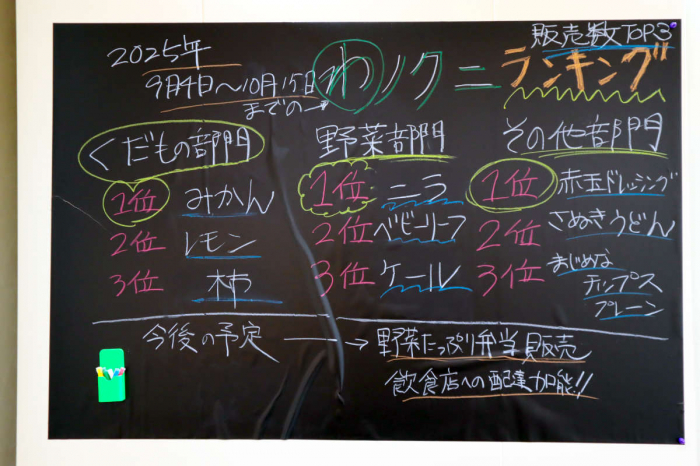 販売数TOP3
2025年
9月4日〜10月15日
までの→
わノクニ ランキング
くだもの部門
1位 みかん
2位 レモン
3位 柿
野菜部門
1位 ニラ
2位 ベビーリーフ
3位 ケール
その他部門
1位 赤玉ドレッシング
2位 さぬきうどん
3位 まじめな
チップス
プレーン
今後の予定 → 野菜たっぷり弁当販売
飲食店への配達可能!!